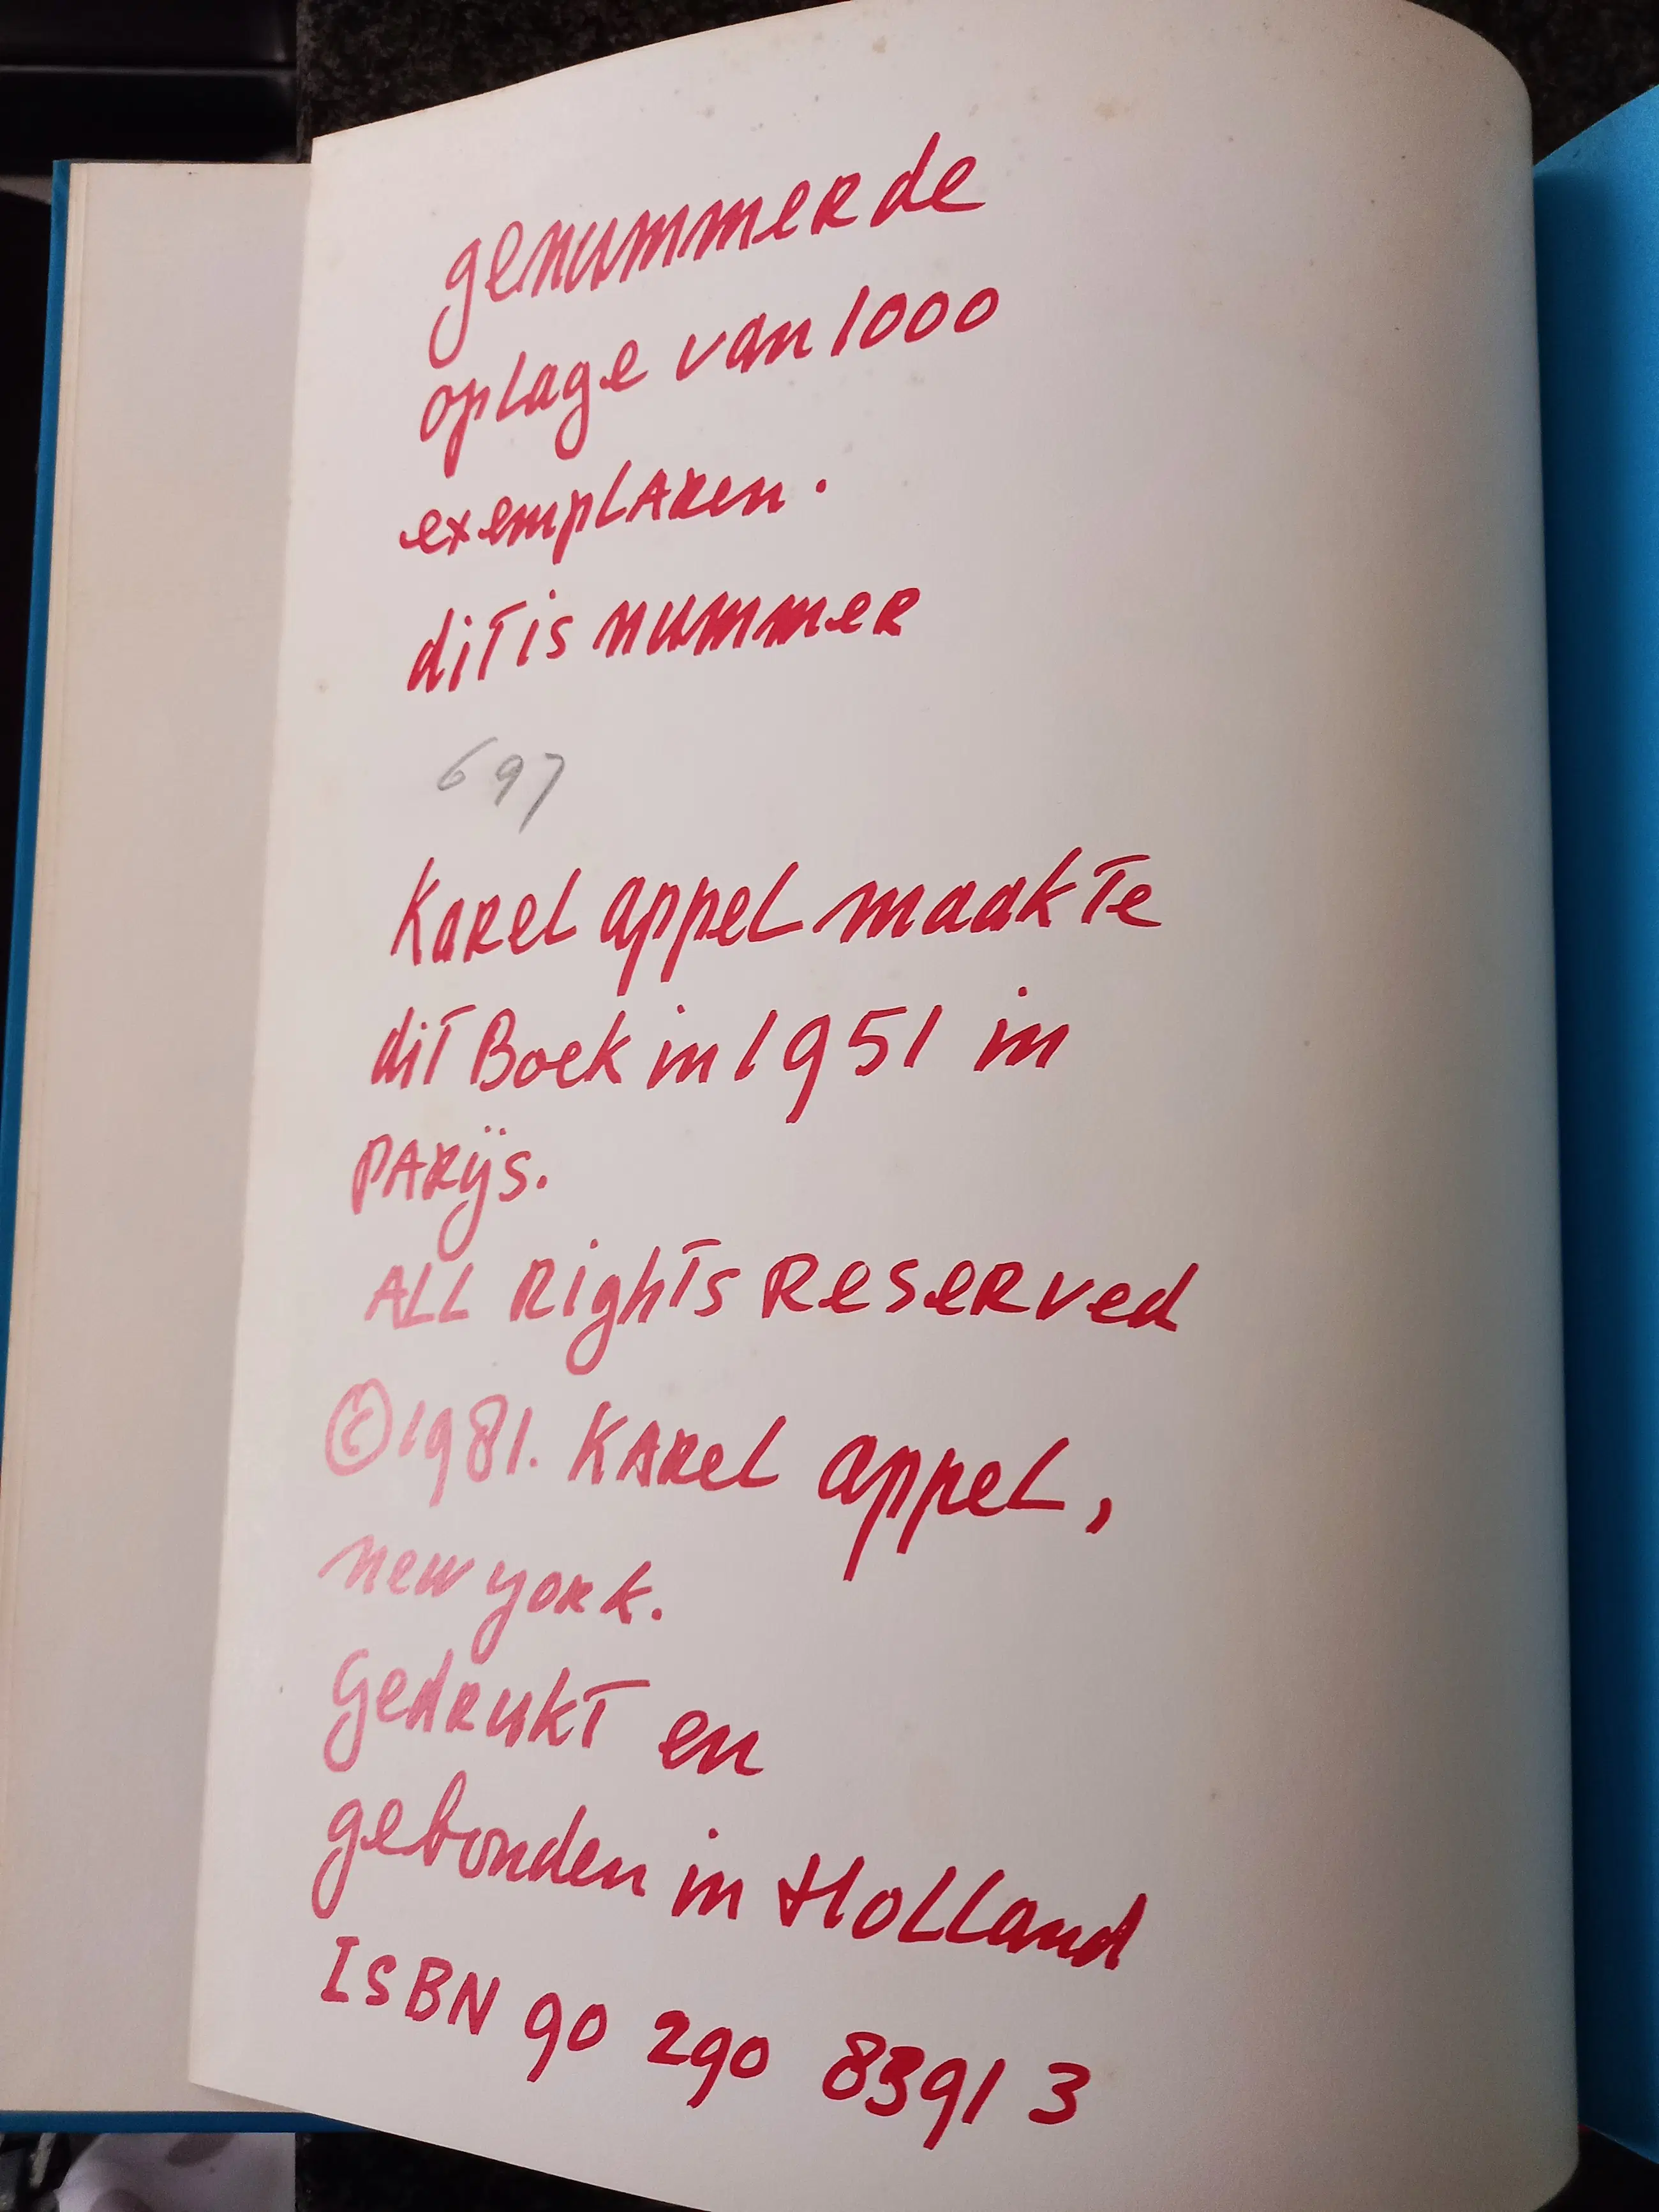 genummerde
oplage van 1000
exemplaren.
dit is nummer
697
Karel appel maakte
dit Boek in 1951 in
PARijs.
ALL Rights Reserved
©1981. KARel appel,
new york.
Gedrukt en
gebonden in Holland
IsBN 90 290 8391 3